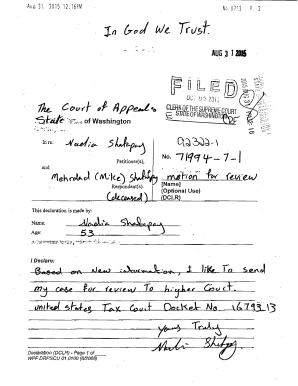 Aug 31, 2015 12:16PM
No. 0713 P. 3
In God We Trust.
AUG 31 2015
FILED
CLERK OF THE SUPREME COURT
STATE OF WASHINGTON
The Court of Appeals
State of Washington
In re: Nadia Shakpay
92322-1
Petitioner(s),
No. 71994-7-1
and
Mehrdad (Mike) Shakpay
motion for review
Respondent(s)
[Name]
(deceased)
(Optional Use)
(DCLR)
This declaration is made by:
Name: Nadia Shakpay
Age: 53
I Declare:
Based on New information, I like To send
my case for review To higher Court.
united states Tax Court Docket No. 16793-13
yours Truly
Declaration (DCLR) - Page 1 of
WPF DRPSCU 01.0100 (6/2006)